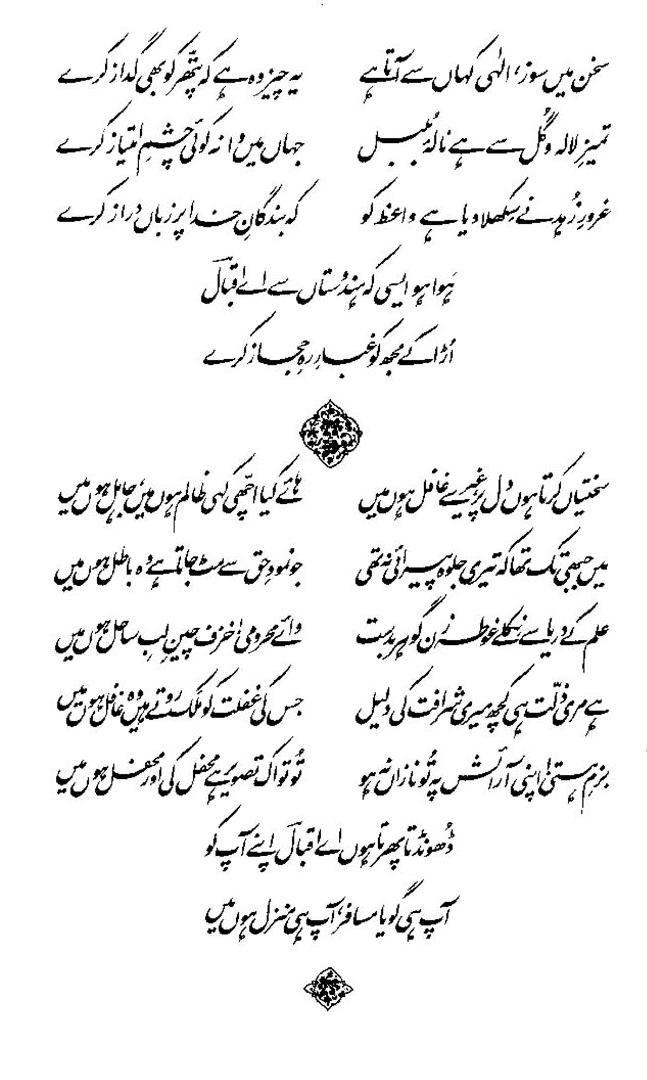 سخن میں سوز، الٰہی کہاں سے آتا ہے یہ چیز وہ ہے کہ پتھّر کو بھی گداز کرے
تمیزِ لالہ و گُل سے ہے نالۂ بُلبل جہاں میں وا نہ کوئی چشمِ امتیاز کرے
غرورِ زُہد نے سِکھلا دیا ہے واعظ کو کہ بندگانِ خدا پر زباں دراز کرے
ہَوا ہو ایسی کہ ہندُستاں سے اے اقبالؔ
اُڑا کے مجھ کو غبارِ رہِ حجاز کرے
سختیاں کرتا ہوں دل پر، غیر سے غافل ہوں میں ہائے کیا اچھّی کہی ظالم ہوں میں، جاہل ہوں میں
میں جبھی تک تھا کہ تیری جلوہ پیرائی نہ تھی جو نمودِ حق سے مٹ جاتا ہے وہ باطل ہوں میں
علم کے دریا سے نِکلے غوطہ زن گوہر بدست وائے محرومی! خزف چینِ لبِ ساحل ہوں میں
ہے مری ذلّت ہی کچھ میری شرافت کی دلیل جس کی غفلت کو مَلَک روتے ہیں وہ غافل ہوں میں
بزمِ ہستی! اپنی آرائش پہ تُو نازاں نہ ہو تُو تو اک تصویر ہے محفل کی اور محفل ہوں میں
ڈھُونڈتا پھرتا ہوں اے اقبالؔ اپنے آپ کو
آپ ہی گویا مسافر، آپ ہی منزل ہوں میں